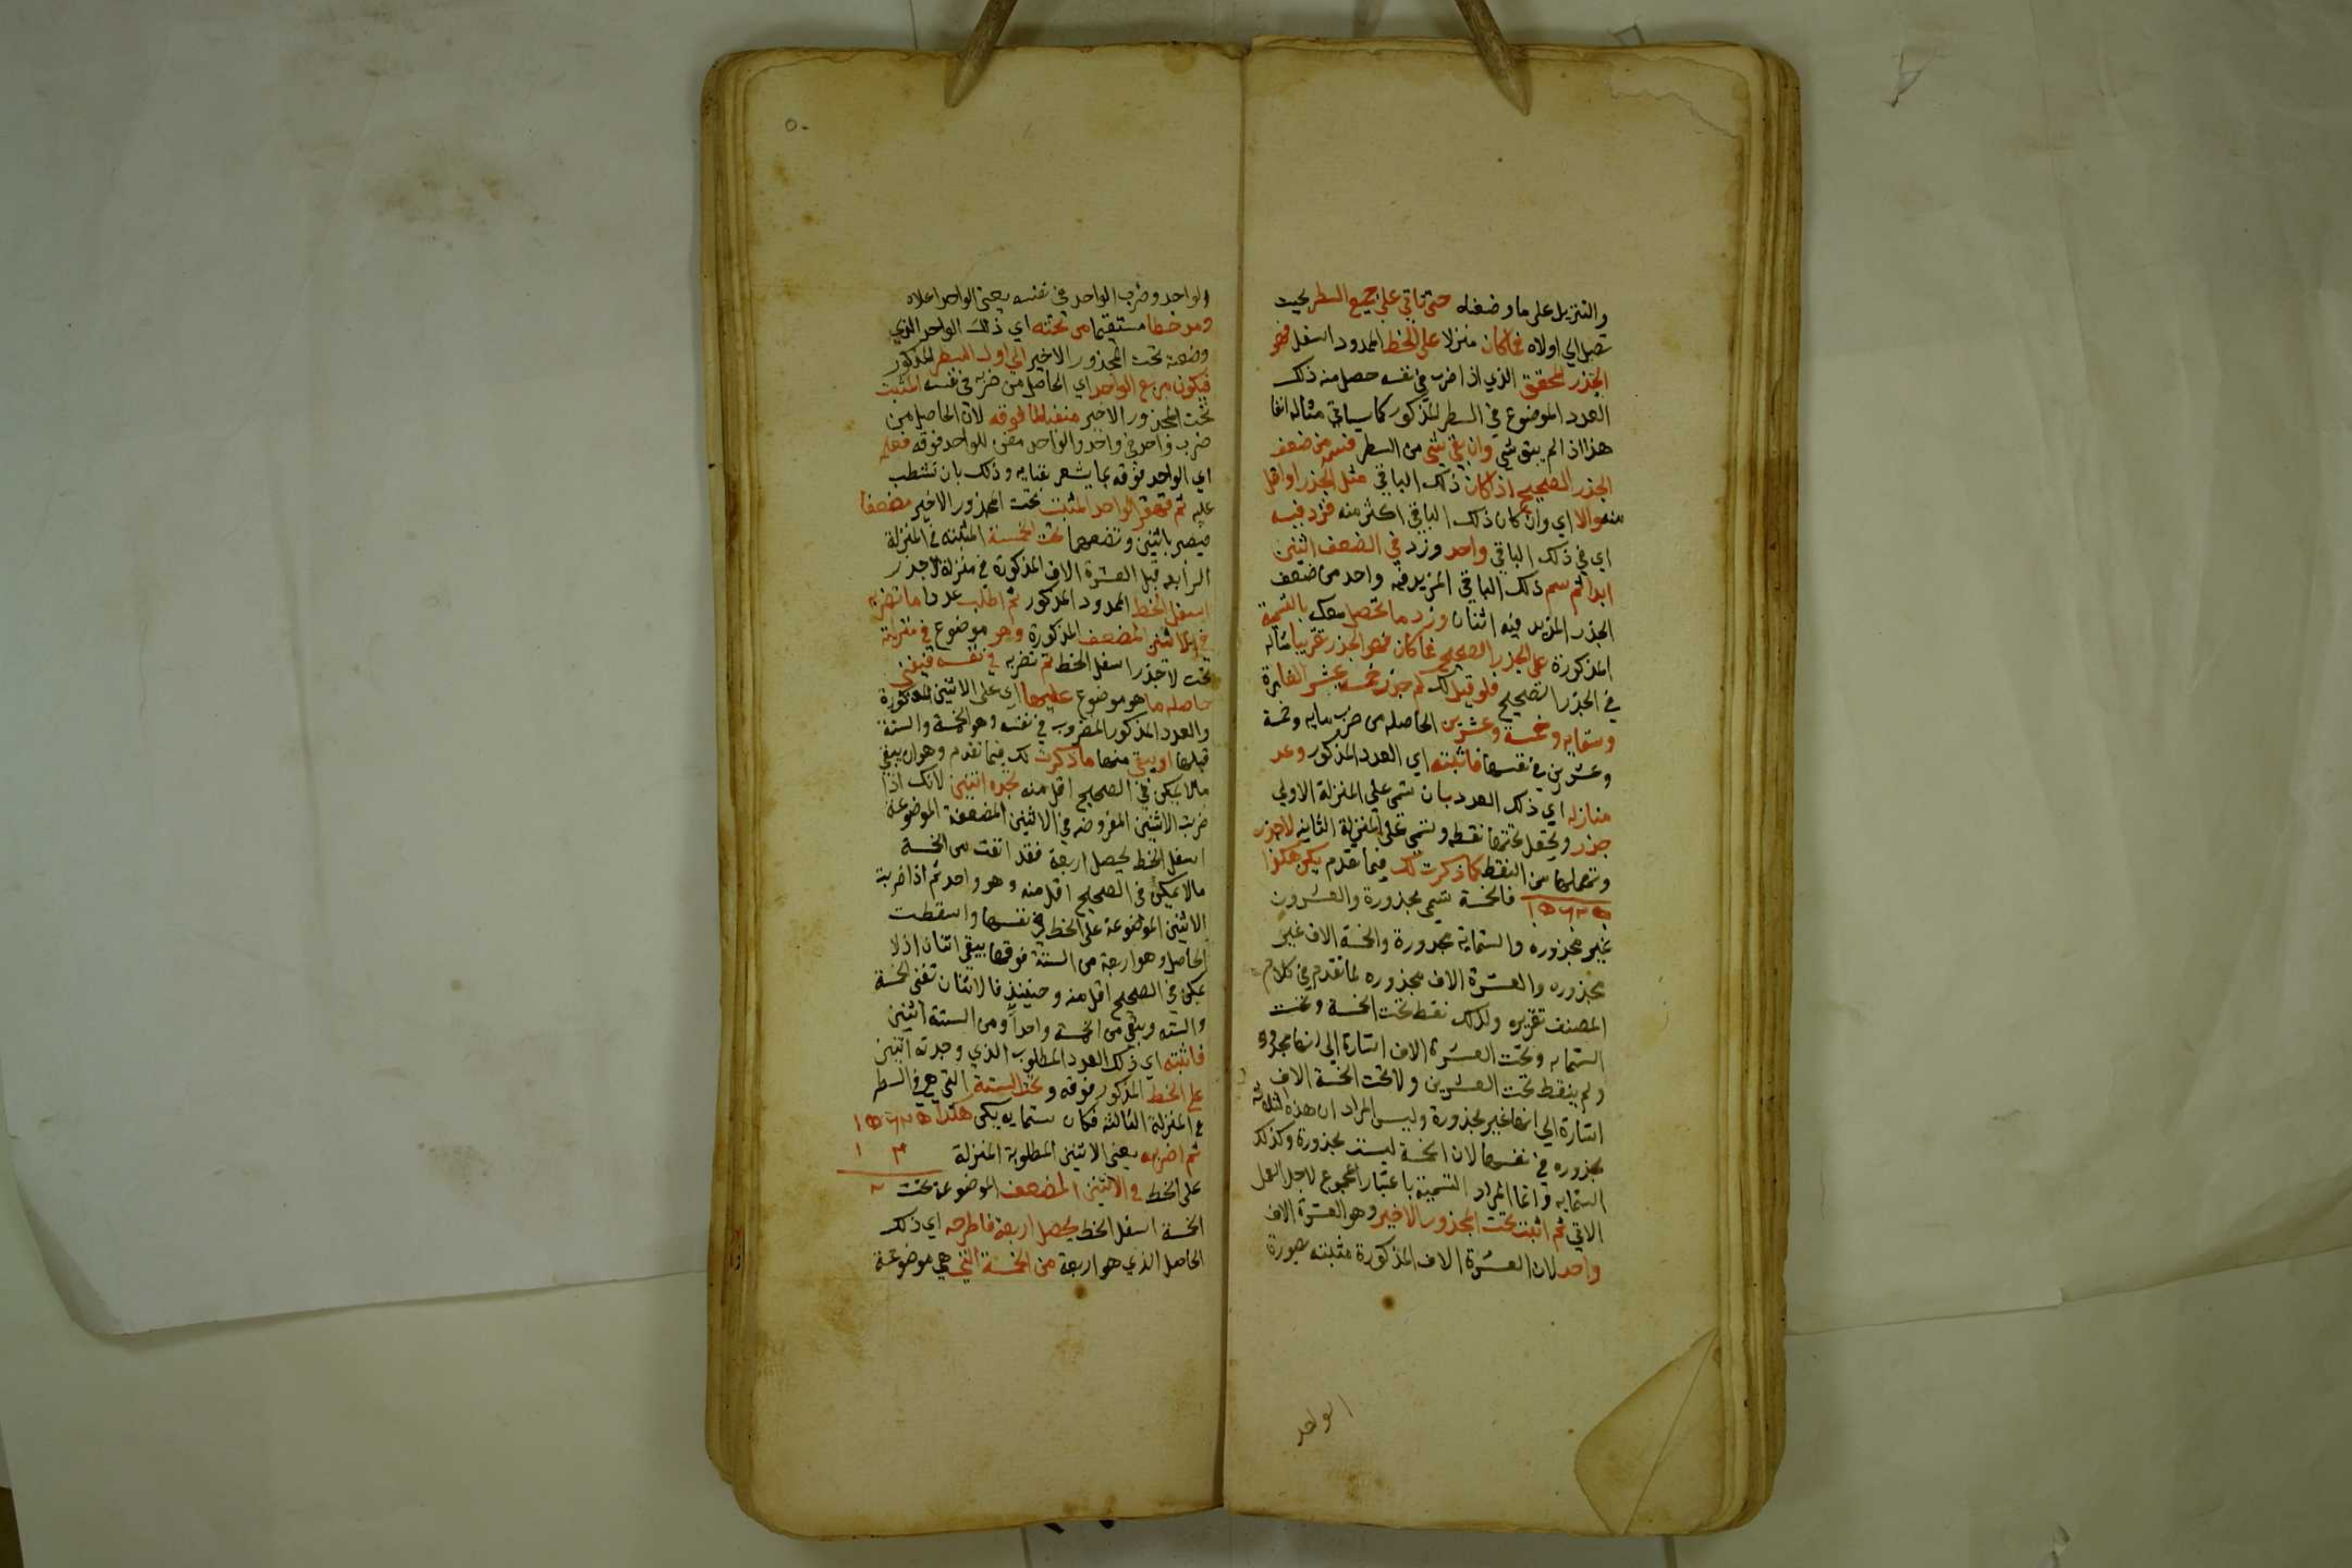 والتنزيل على ما وضعته حتى تاتي على جميع السطر بحيث
تصل الي اولاه فما كان منزلا على الخط الممدود اسفل فهو
الجذر المحقق الذي اذا ضرب في نفسه حصل منه ذلك
العدد الموضوع في السطر المذكور كما سياتي مثاله انفا
هذا اذا لم يبق شي وان بقي شي من السطر فسمه من ضعف
الجذر الصحيح اذا كان ذلك الباقي مثل الجذر او اقل
منه والا اي وان كان ذلك الباقي اكثر منه فزد فيه
اي في ذلك الباقي واحد وزد في الضعف اثنين
ابدا ثم سم ذلك الباقي المزيد فيه واحد من ضعف
الجذر المزيد فيه اثنان وزد ما تحصل معك بالتسمية
المذكورة على الجذر الصحيح فما كان فهو الجذر تقريبا مثاله
في الجذر الصحيح فلو قيل لك كم جذر خمسة عشر الفا
وستمايه وخمسة وعشرين الحاصله من ضرب مايه وخمسة
وعشرين في نفسها فاثبته اي العدد المذكور وعد
منازله اي ذلك العدد بان تسمي على المنزلة الاولي
جذر وتجعل تحتها نقطه وتسمي على المنزلة الثانيه لا جذر
وتهملها من النقط كما ذكرت لك فيما تقدم يكن هكذا
١٥٦٢٥ فالخمسة تسمي مجذورة والعشرون
غير مجذوره والستماية مجذورة والخمسة الاف غير
مجذوره والعشرة الاف مجذوره لما تقدم في كلام
المصنف تقريره ولذلك نقط تحت الخمسة وتحت
الستمايه وتحت العشرة الاف اشارة الي انها مجذورة
ولم ينقط تحت العشرين ولا تحت الخمسة الاف
اشارة الي انها غير مجذورة وليس المراد ان هذه الثلاثة
مجذوره في نفسها لان الخمسة ليست مجذورة وكذلك
الستمايه وانما المراد التسمية باعتبار المجموع لاجل العمل
الاتي ثم اثبت تحت المجذور الاخير وهو العشرة الاف
واحد لان العشرة الاف المذكورة مثبته بصورة
الواحد
٥٠
الواحد وضرب الواحد في نفسه يعني الواحد اعلاه
ومد خطا مستقيما من تحته اي ذلك الواحد الذي
وضعته تحت المجذور الاخير الي اول السطر المذكور
فيكون مربع الواحد اي الحاصل من ضربه في نفسه المثبت
تحت المجذور الاخير منفيا لما فوقه لان الحاصل من
ضرب واحد في واحد والواحد مفني للواحد فوقه فعلم
اي الواحد فوقه بما يشعر بفنايه وذلك بان تشطب
عليه ثم قهقر الواحد المثبت تحت المجذور الاخير مضعفا
فيصير باثنين وتضعهما تحت الخمسة المثبته في المنزلة
الرابعه قبل العشرة الاف المذكورة في منزلة لا جذر
اسفل الخط الممدود المذكور ثم اطلب عددا ما تضربه
في الاثنين المضعف المذكورة وهو موضوع في منزلة
تحت لا جذر اسفل الخط ثم تضربه في نفسه فيفني
حاصله ما هو موضوع عليها اي على الاثنين المذكورة
والعدد المذكور المضروب في نفسه وهو الخمسة والستة
قبلها او يبقي منها ما ذكرت لك فيما تقدم وهو ان يبقي
ما لا يمكن في الصحيح اقل منه تجده اثنين لانك اذا
ضربت الاثنين المفروضه في الاثنين المضعفة الموضوعة
اسفل الخط يحصل اربعة فقد افت من الخمسة
ما لا يمكن في الصحيح اقل منه وهو واحد ثم اذا ضربت
الاثنين الموضوعة على الخط في نفسها واسقطت
الحاصل وهو اربعة من الستة فوقها يبقي اثنان اذ لا
يمكن في الصحيح اقل منه وحينيذ فالاثنان تفني الخمسة
والسته ويبقي من الخمسة واحدا ومن الستة اثنين
فاثبته اي ذلك العدد المطلوب الذي وجدته اثنين
على الخط المذكور فوقه وتحت الستة التي هي في السطر
في المنزلة الثالثه فكان ستمايه يكن هكذا ١٥٦٢٥
ثم اضربه يعني الاثنين المطلوبة المنزلة ١ ٢
على الخط في الاثنين المضعف الموضوعة تحت ٢
الخمسة اسفل الخط يحصل اربعة فاطرحه اي ذلك
الحاصل الذي هو اربعة من الخمسة التي هي موضوعة